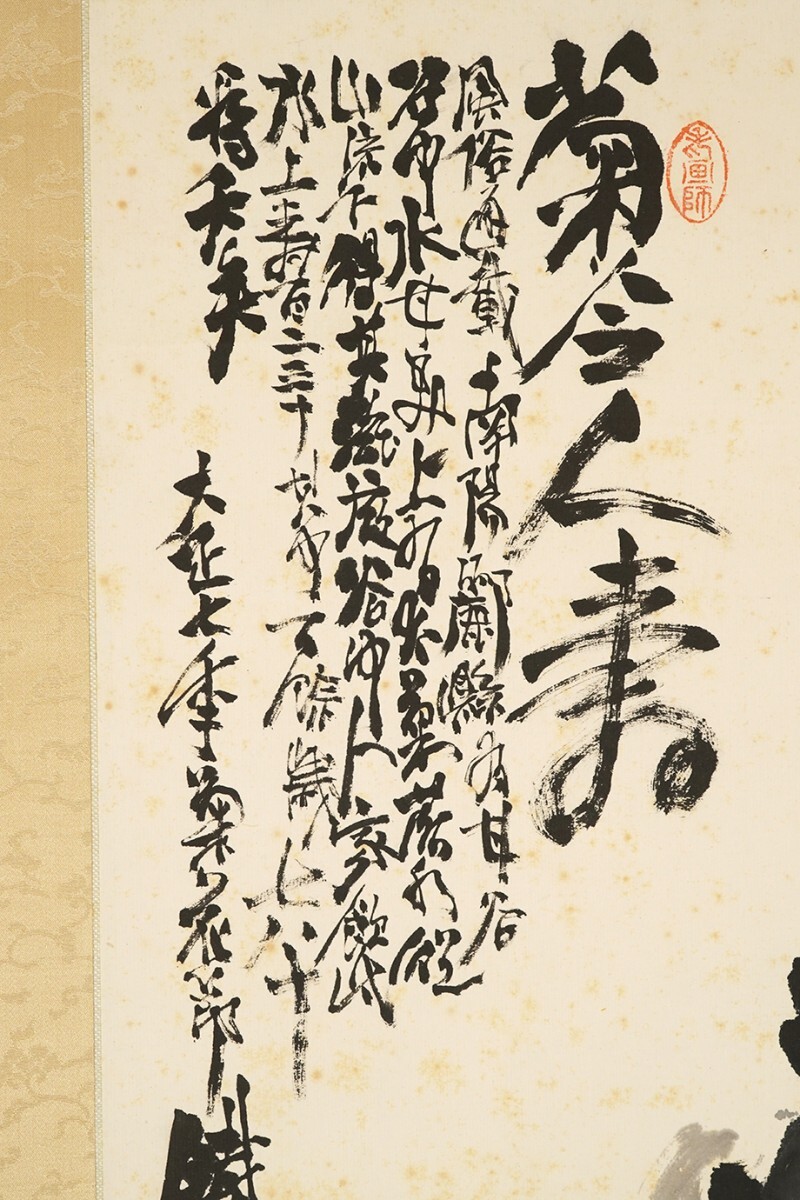 菊令人壽
風俗通載南陽酈縣有甘谷
谷中水甘美上有大菊落水從
山流下得其滋液谷中人家飲此
水上壽百二三十其中百餘歲七八十
為夭矣
大正七年菊花節
鐵
畫師